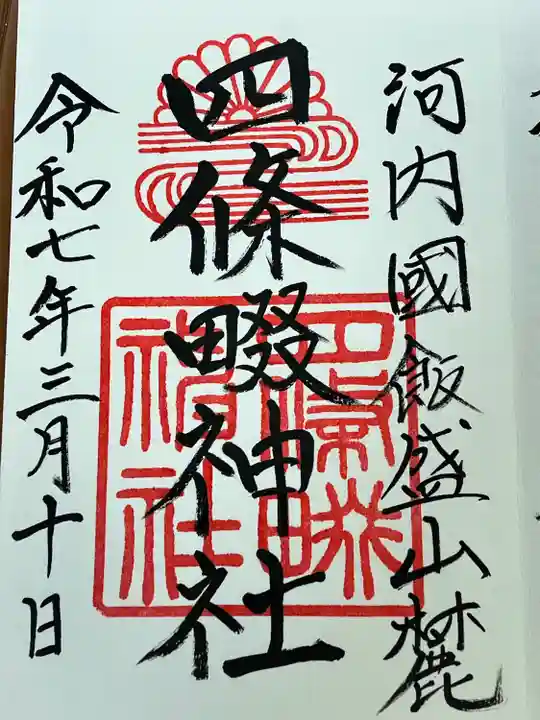 河内國飯盛山麓
四條畷神社
令和七年三月十日
四條畷
神社